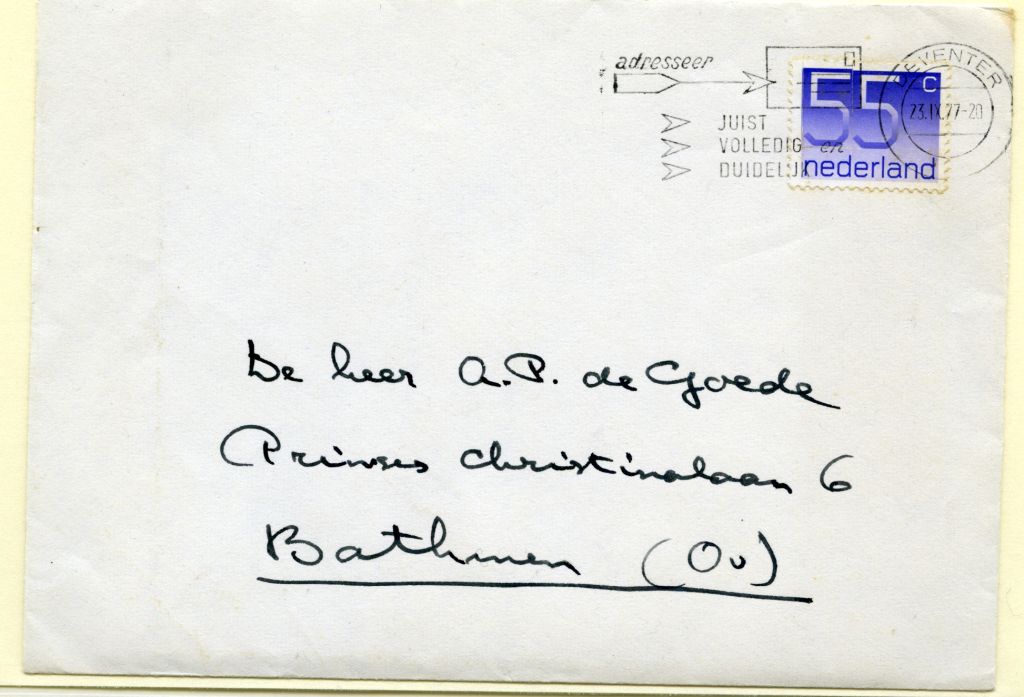 adresseer
JUIST
VOLLEDIG en
DUIDELIJK
DEVENTER
23.IX.77-20
55 C
nederland
De heer A.P. de Goede
Prinses Christinalaan 6
Bathmen (Ov)